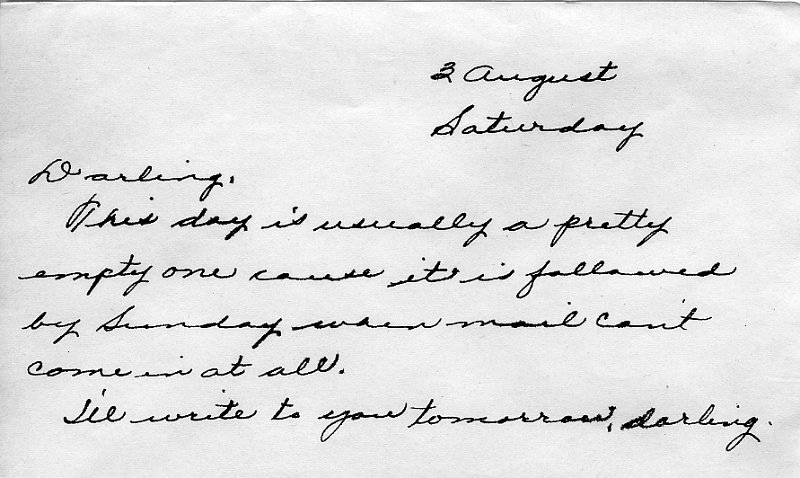 3 August
Saturday
Darling,
This day is usually a pretty
empty one cause it is followed
by Sunday when mail can't
come in at all.
I'll write to you tomorrow, darling.